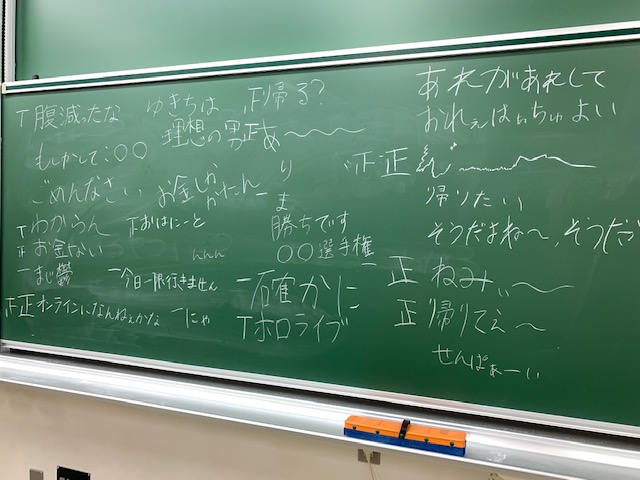 T 腹減ったな
ゆきちは
正 帰る?
理想の男正あ〜〜〜
もしかして:〇〇
ごめんなさい
お金しか
かたん
り
ま
T わからん
正 おはにーと
正 お金ない
んんん
一 まじ鬱
一 今日一限行きません
正正 オンラインになんねぇかな
一 にゃ
勝ちです
〇〇選手権
一 確かに
T ホロライブ
あれがあれして
おれぇはぃちゅよい
正正
帰りたい
そうだよね〜、そうだ
一正 ねみぃ〜
正 帰りてぇ〜
せんぱぁーぃ